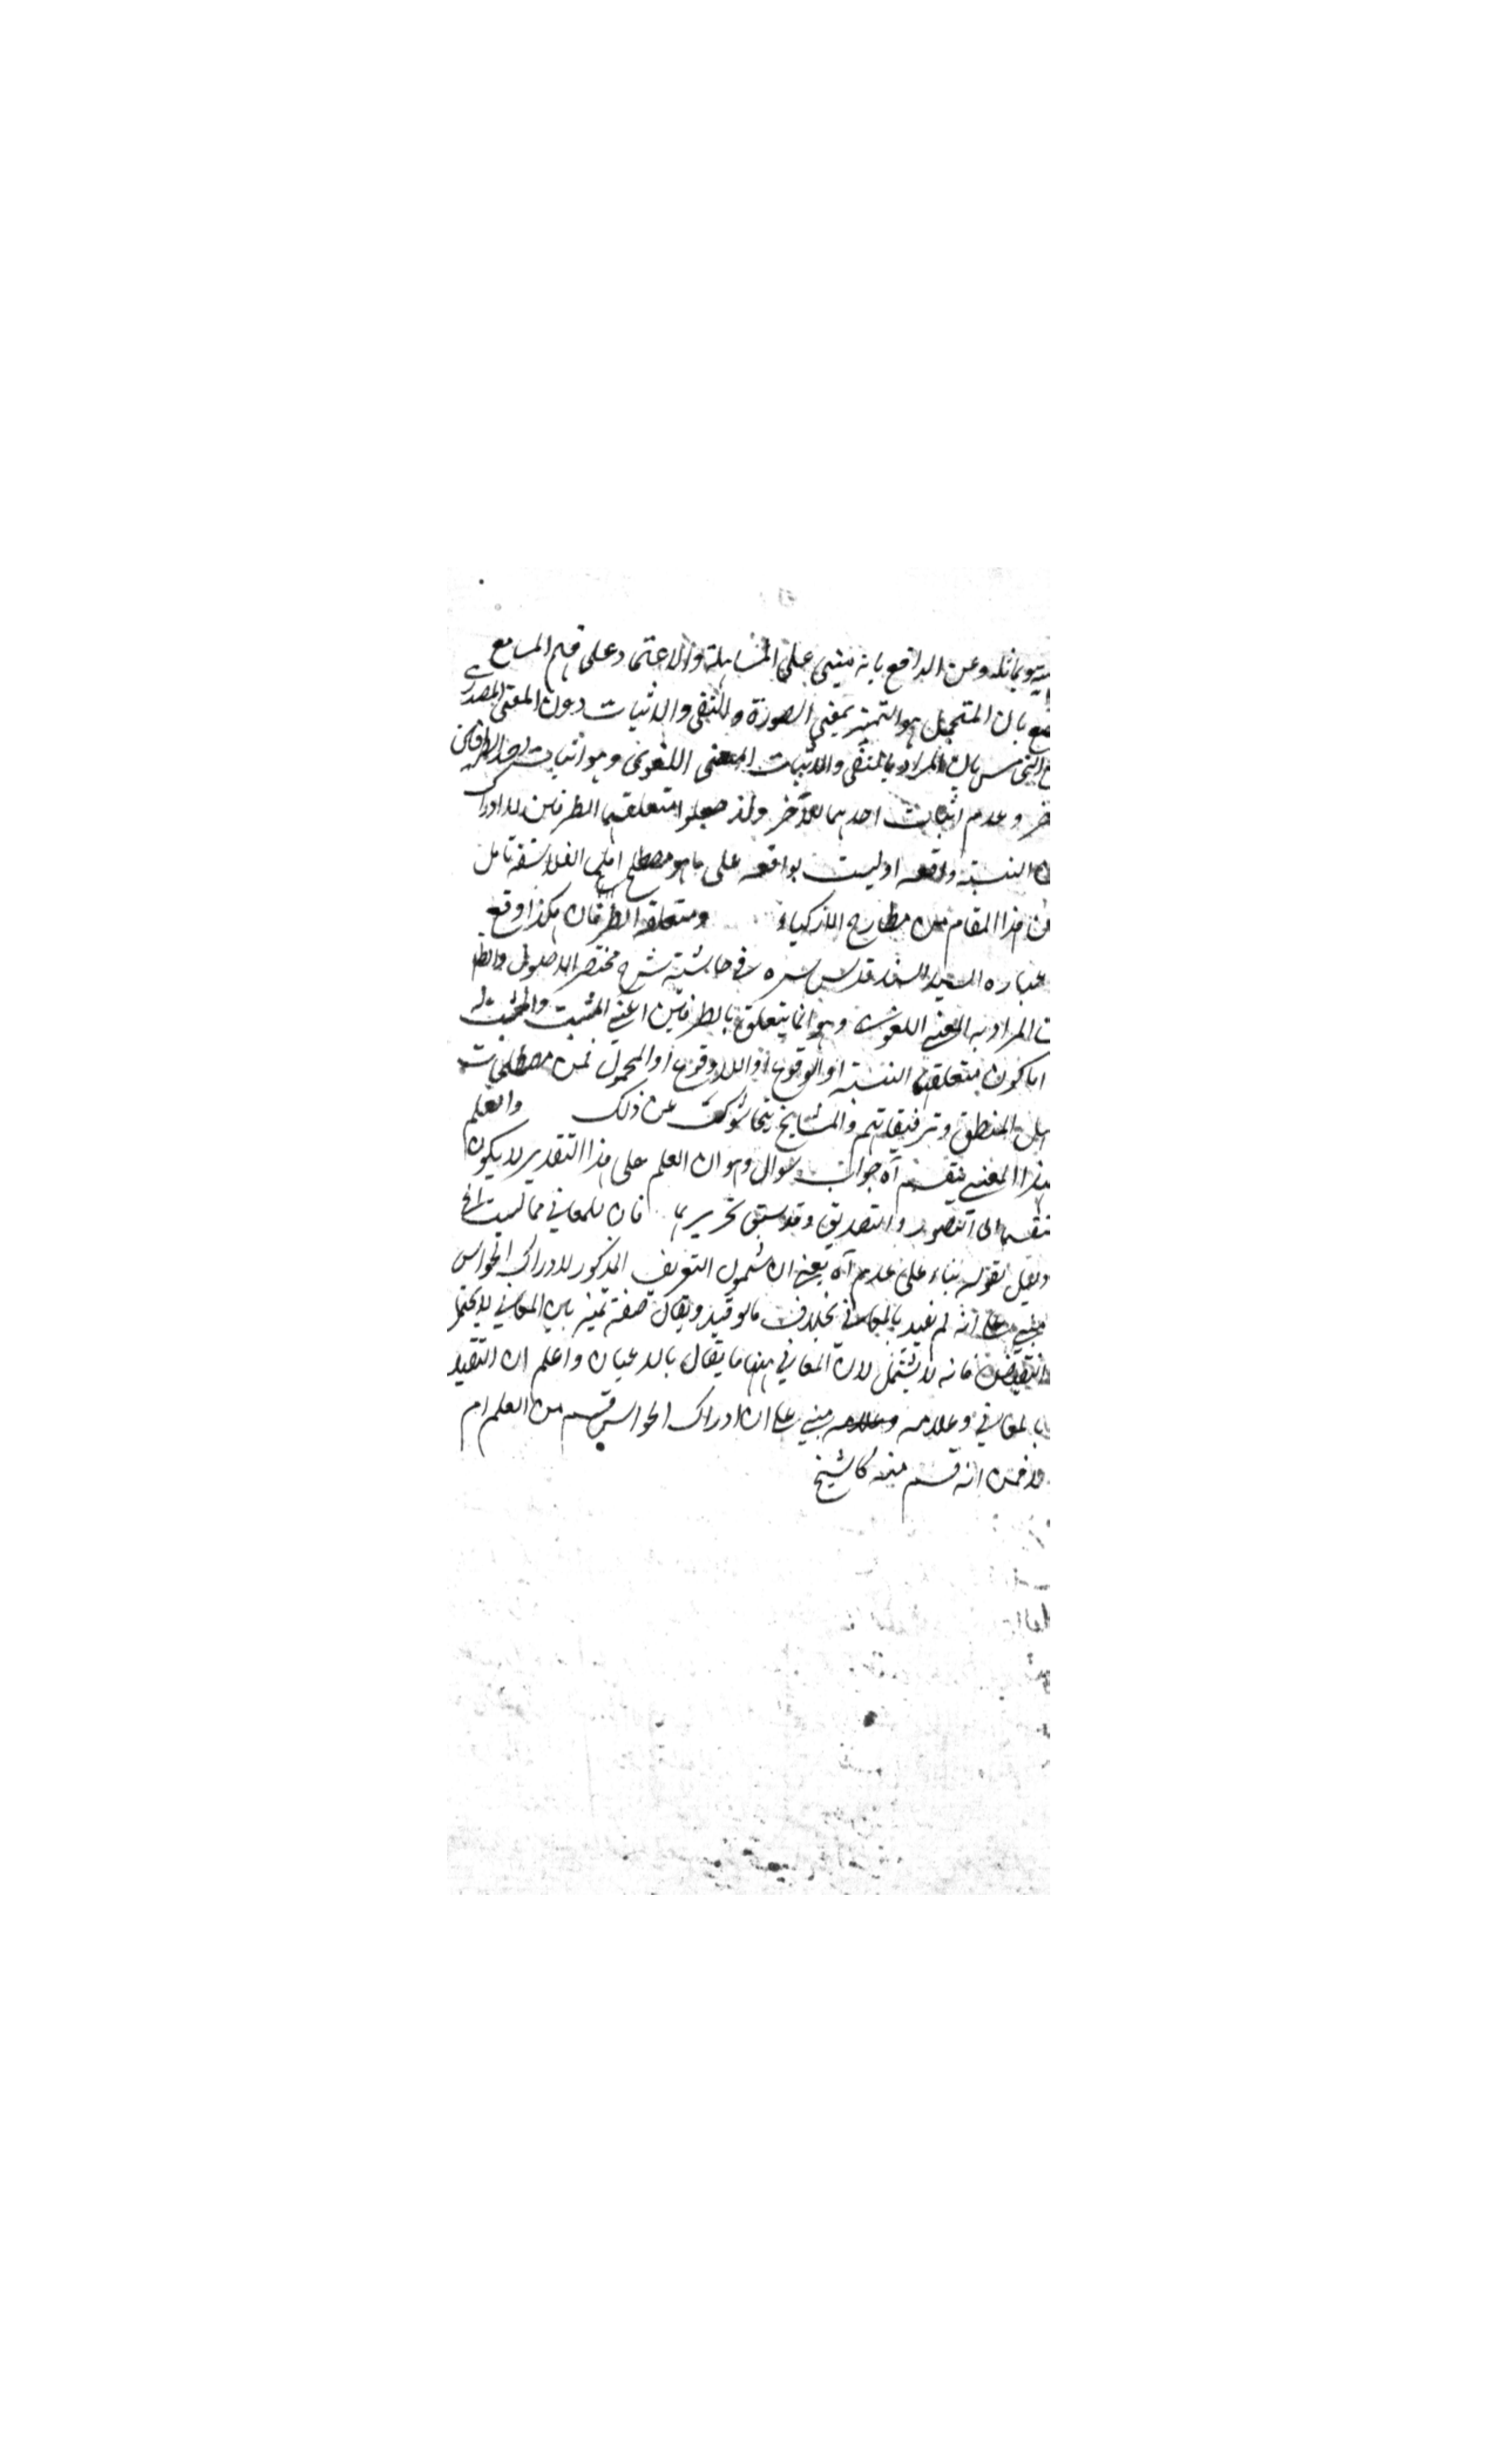 ويماثله وعن الدافع بانه مبني على المساهلة والاعتماد على فهم السامع
بان المتحمل هو التميز بمعنى الصورة والنفي والاثبات دون المعنى المصدري
بان المراد بالنفي والاثبات المعنى اللغوي وهو اثبات احد الطرفين
خر وعدم اثبات احدهما للآخر ولذا جعلوا متعلقهما الطرفين لا ادراك
ان النسبة واقعة او ليست بواقعة على ما هو مصطلح اهل الفلاسفة تامل
فان هذا المقام من مطارح الاذكياء ومتعلقه الطرفان هكذا وقع
عباره السيد السند قدس سره في حاشية شرح مختصر الاصول والظ
ن المراد به المعنى اللغوي وهو انما يتعلق بالطرفين اعني المثبت والمثبت له
اما كون متعلقها النسبة او الوقوع او اللاوقوع او المحمول فمن مصطلحات
اهل المنطق وترقيقاتهم والمشايخ يتحاشون عن ذلك والعلم
بهذا المعنى ينقسم آه جواب سوال وهو ان العلم على هذا التقدير لا يكون
منقسما الى التصور والتصديق وقد سبق تحريرها فان المعاني مما ليست الخ
لقوله بناء على عدم آه يعني ان شمول التعريف المذكور لادراك الحواس
مبني على انه لم يقيد بالمعاني بخلاف ما لو قيد ويقال صفة تميز بين المعاني لا يحتمل
النقيض فانه لا يشتمل لان المعاني هنا ما يقابل بالاعيان واعلم ان التقييد
بالمعاني وعدمه وعدمه مبني على ان ادراك الحواس قسم من العلم ام
لا فمن انه قسم منه كالشيخ